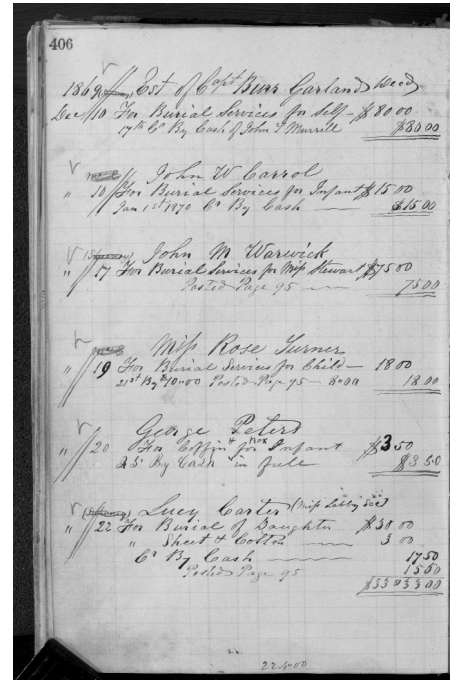 406
1869 Est of Capt Burr Garland Decd
Dec 10 For Burial Services for Self - $80 00
17th Cr By Cash of John T Murrell $80 00
John W Carrol
" 10 For Burial Services for Infant $15 00
Jan 1st 1870 Cr By Cash $15 00
John M Warwick
" 17 For Burial Services for Miss Stewart $75 00
Posted Page 95 75 00
Miss Rose Turner
" 19 For Burial Services for Child - 18 00
21st By $10.00 Posted Page 95 - 8.00 18.00
George Peters
" 20 For Coffin + Box for Infant $3 50
25 By Cash in full $3 50
Lucy Carter (Miss Libby
" 22 For Burial of Daughter $30 00
" Sheet & Cotton 3 00
Cr By Cash 17 50
Posted Page 95 15 50
$33 00 33 00